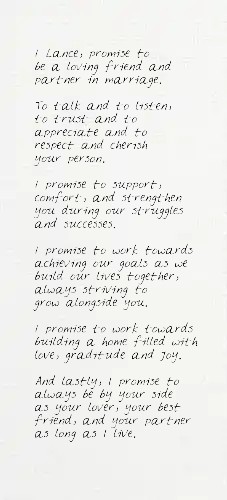 I Lance, promise to
be a loving friend and
partner in marriage.
To talk and to listen,
to trust and to
appreciate and to
respect and cherish
your person.
I promise to support,
comfort, and strengthen
you during our struggles
and successes.
I promise to work towards
achieving our goals as we
build our lives together,
always striving to
grow alongside you.
I promise to work towards
building a home filled with
love, gratitude and joy.
And lastly, I promise to
always be by your side
as your lover, your best
friend, and your partner
as long as I live.